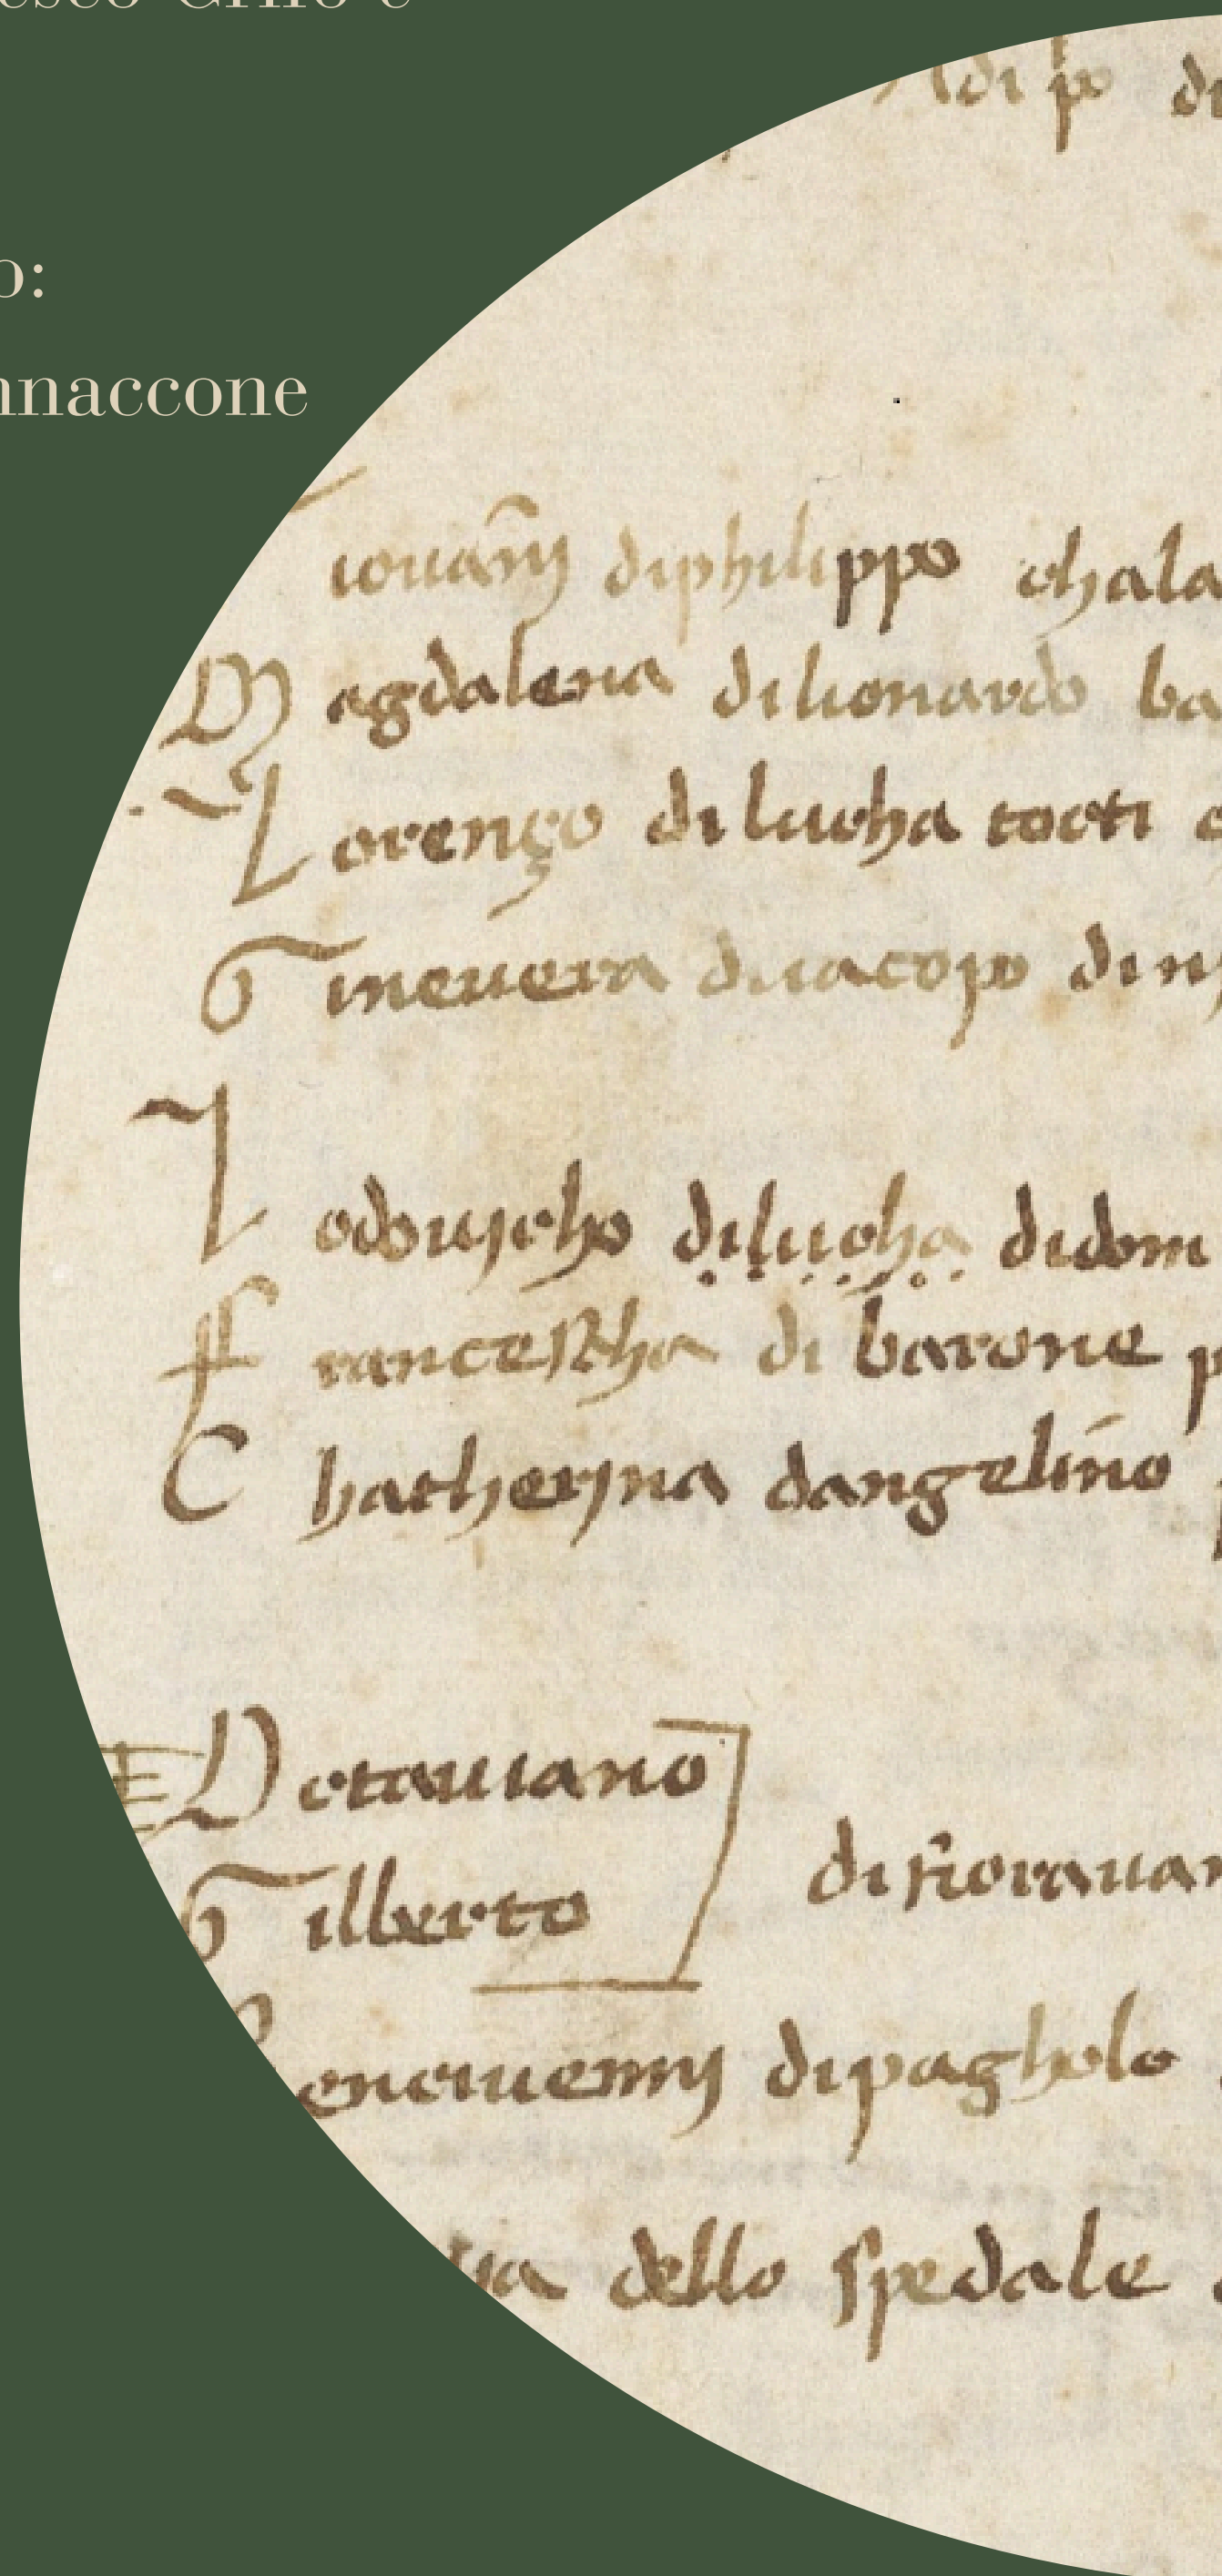 Adi po di
o:
nnaccone
iouanj di philippo chala
Magdalena di lionardo ba
Lorenço di lucha tocti
Gineuera di iacopo di
Lodouicho di lucha di dom
francescha di barone p
Chatherina dangelino
Octauiano
Gilberto
di fiorauan
enciuennj di pagholo
dello spedale